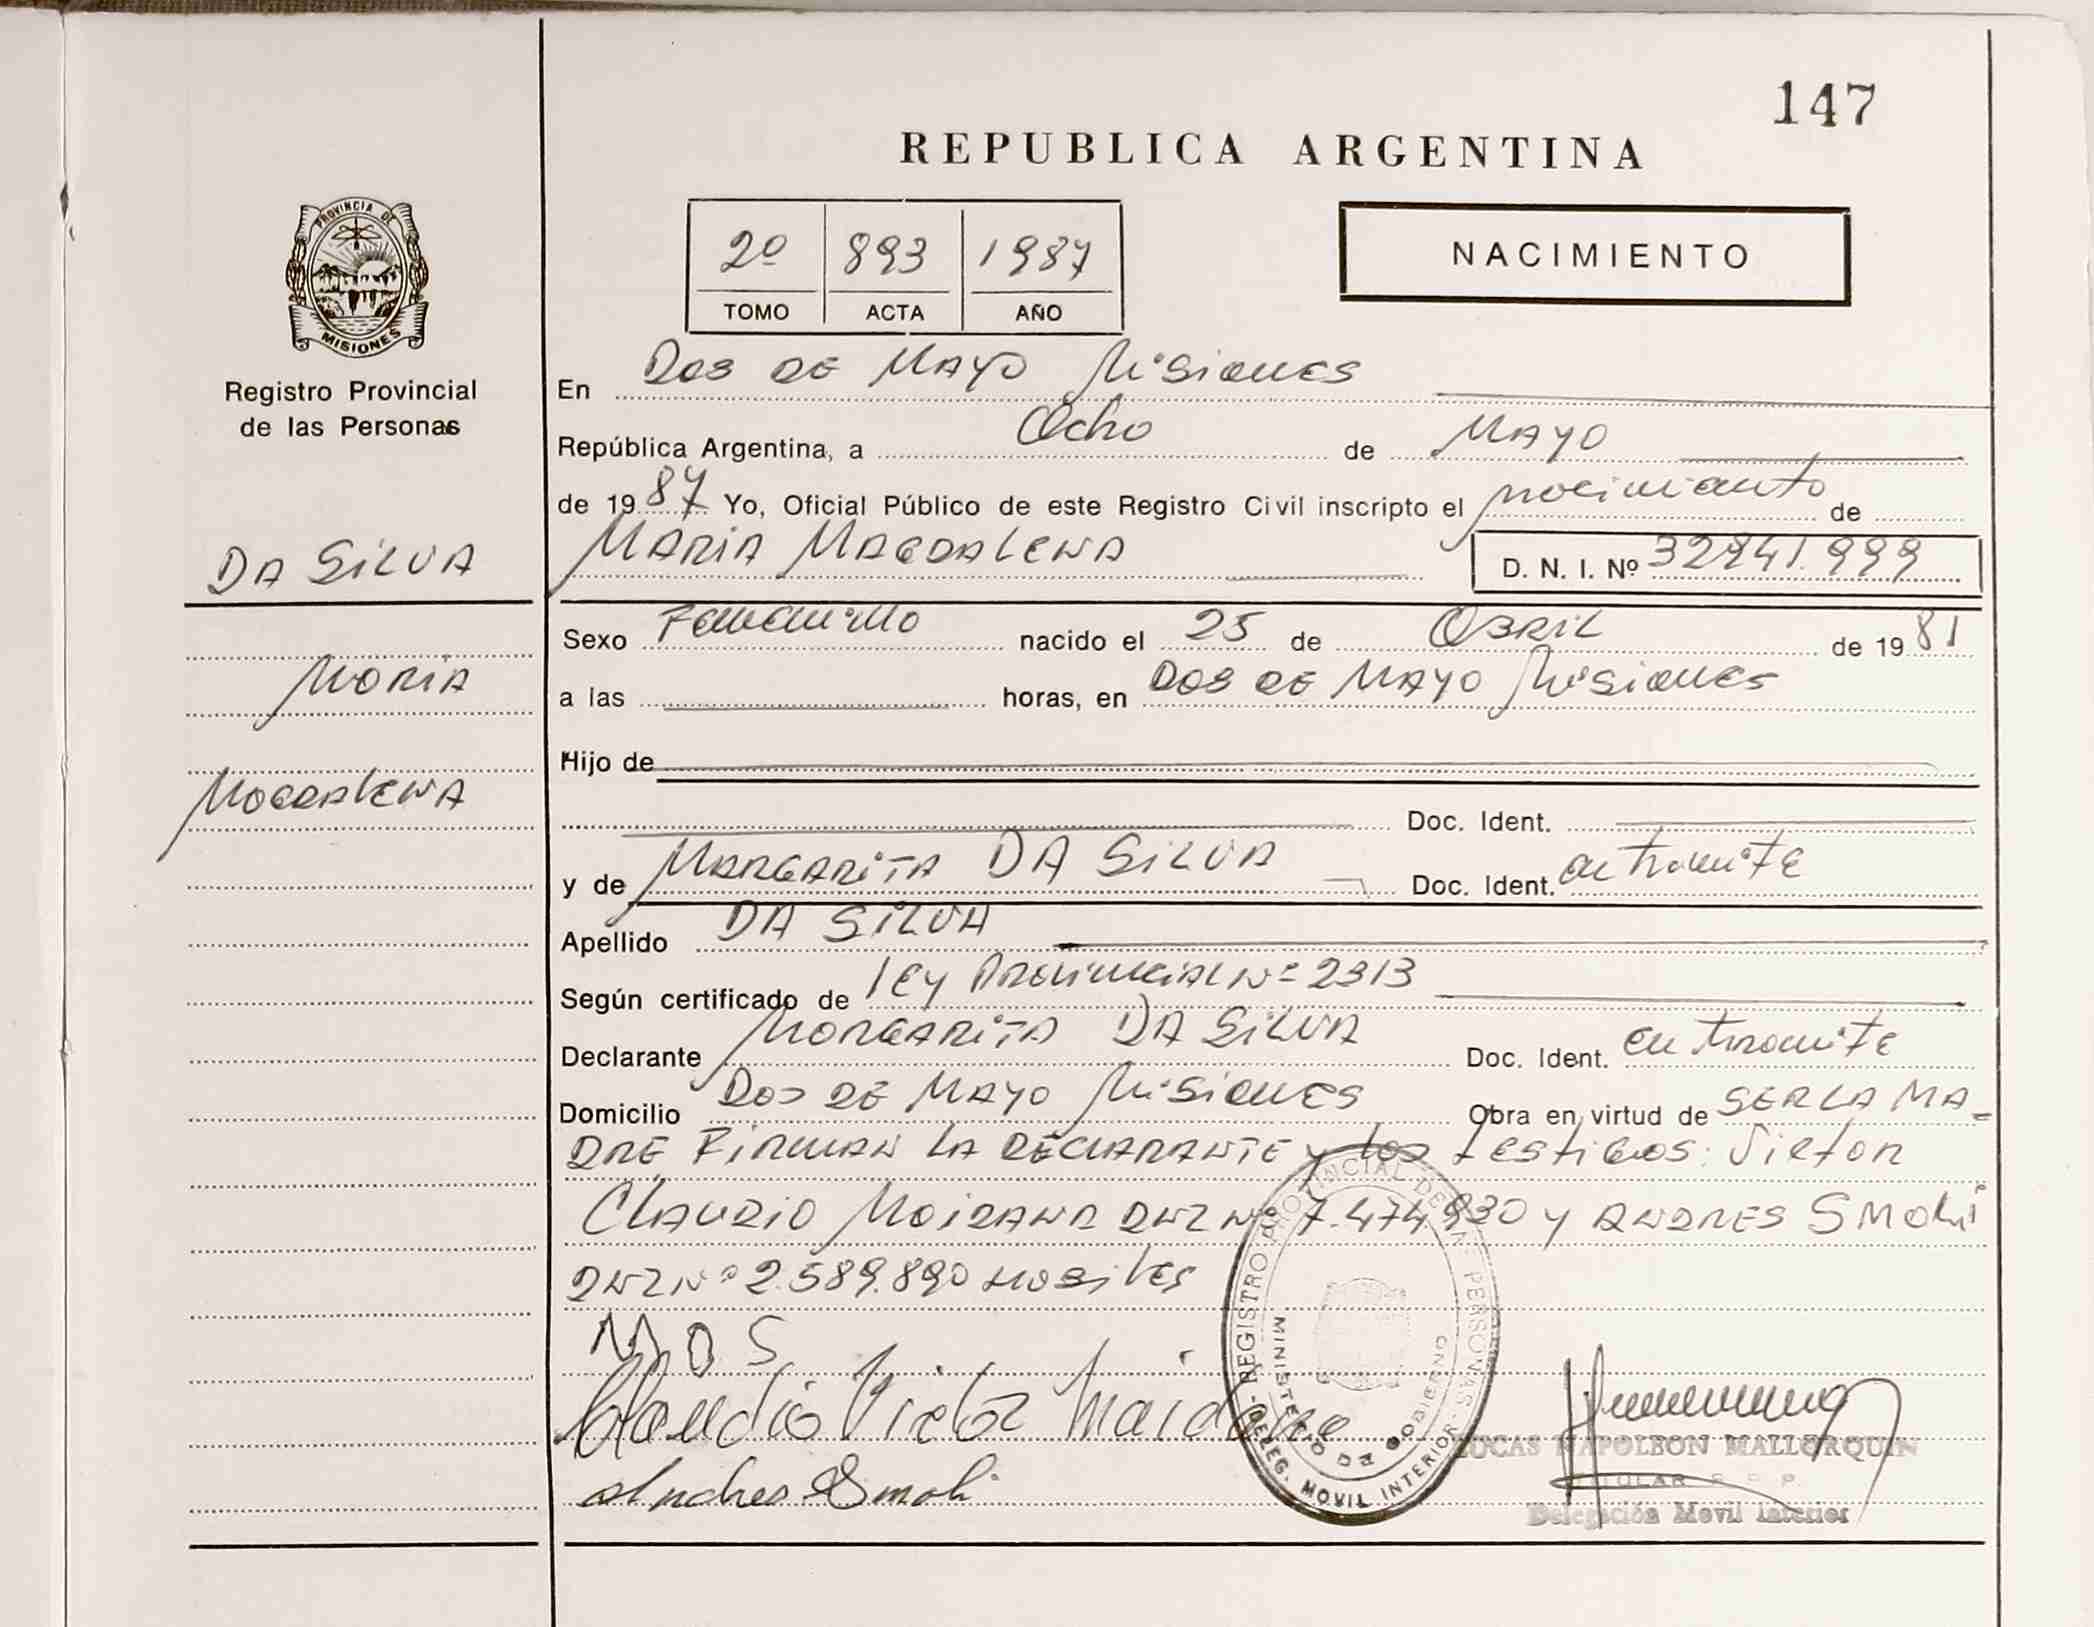 147
REPUBLICA ARGENTINA
2º 893 1987
TOMO ACTA AÑO
NACIMIENTO
PROVINCIA DE
MISIONES
Registro Provincial
de las Personas
DA SILVA
MARIA
MAGDALENA
En DOS DE MAYO Misiones
República Argentina, a Ocho de MAYO
de 1987 Yo, Oficial Público de este Registro Civil inscripto el nacimiento de
MARIA MAGDALENA D. N. I. Nº 32.941.999
Sexo Femenino nacido el 25 de ABRIL de 1981
a las horas, en DOS DE MAYO Misiones
Hijo de
Doc. Ident.
y de MARGARITA DA SILVA Doc. Ident. en tramite
Apellido DA SILVA
Según certificado de ley PROVINCIAL Nº 2313
Declarante MARGARITA DA SILVA Doc. Ident. en tramite
Domicilio DOS DE MAYO Misiones Obra en virtud de SER LA MA=
DRE FIRMAN LA DECLARANTE y los testigos: Victor
CLAUDIO MOIDANA DNI Nº 7.474.930 y ANDRES SMOLI
DNI Nº 2.589.890 HABILES
M D S
Claudio Victor Maidana
Andres Smoli
REGISTRO PROVINCIAL DE LAS PERSONAS
MINISTERIO DE GOBIERNO
DELEG. MOVIL INTERIOR
LUCAS NAPOLEON MALLORQUIN
TITULAR R. C. P.
Delegación Movil Interior